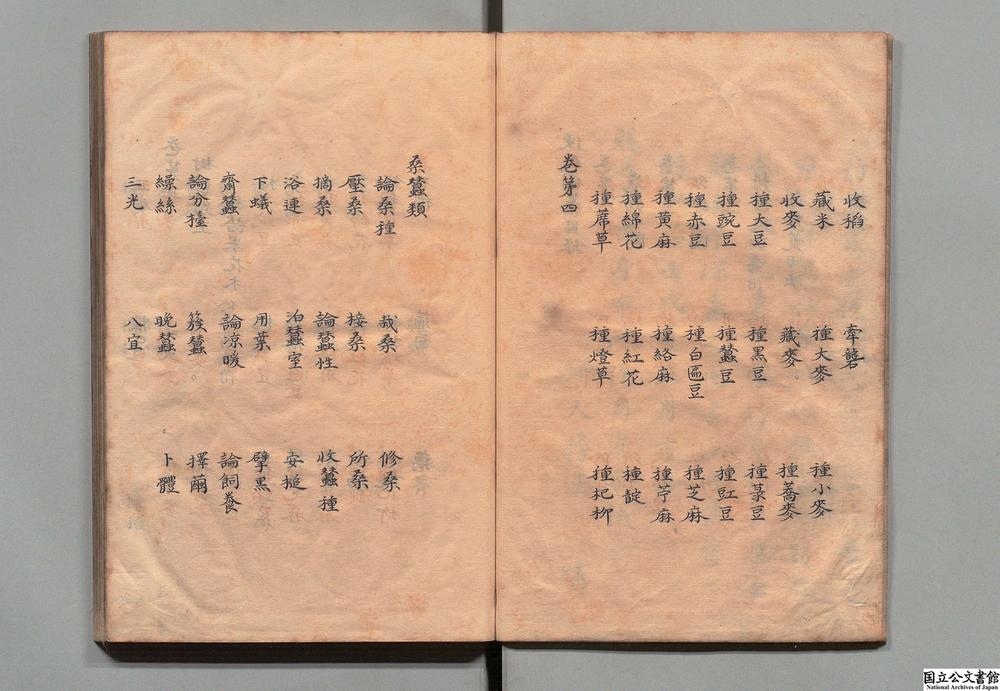 收稻 牽礱
藏米 種大麥 種小麥
收麥 藏麥。 種蕎麥
種大豆 種黑豆 種菉豆
種豌豆 種蠶豆 種豇豆
種赤豆 種白匾豆 種芝麻
種黃麻 種絡麻 種苧麻
種綿花 種紅花 種靛
種蓆草 種燈草 種杞柳
卷第四
桑蠶類
論桑種 栽桑 修桑
壓桑 接桑 斫桑
摘桑 論蠶性 收蠶種
浴連 治蠶室 安槌
下蟻 用葉 擘黑
齋蠶 論凉暖 論飼養
論分擡 簇蠶。 擇繭
繰絲 晚蠶 卜體
三光 八宜
国立公文書館
National Archives of Japan